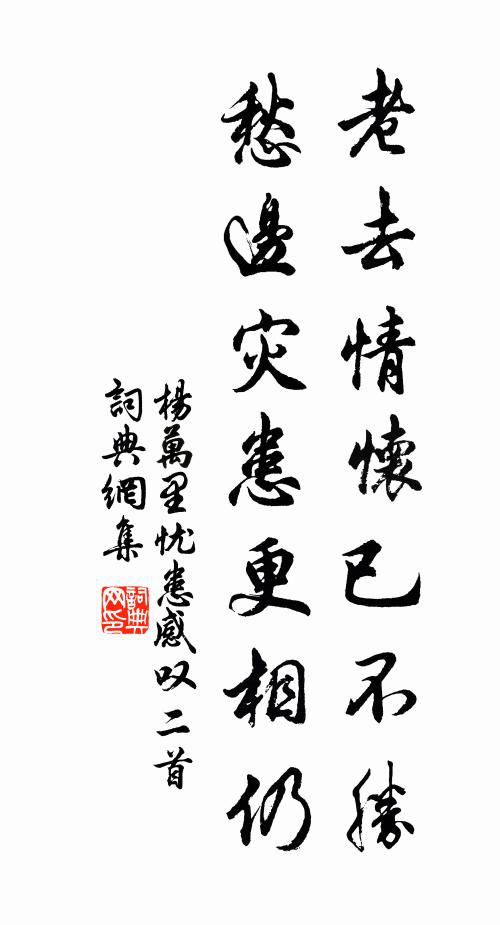 老去情懷已不勝
愁邊灾患更相仍
楊萬里忧患感叹二首
詞典網集
詞典网印